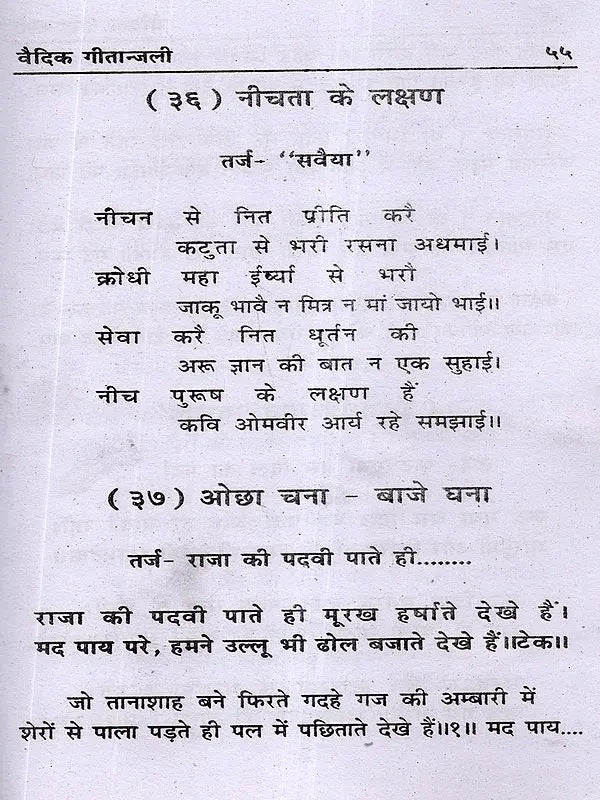 वैदिक गीतान्जली ५५
(३६) नीचता के लक्षण
तर्ज- "सवैया"
नीचन से नित प्रीति करै
कटुता से भरी रसना अधमाई।
क्रोधी महा ईर्ष्या से भरौ
जाकू भावै न मित्र न मां जायो भाई॥
सेवा करै नित धूर्तन की
अरू ज्ञान की बात न एक सुहाई।
नीच पुरूष के लक्षण हैं
कवि ओमवीर आर्य रहे समझाई॥
(३७) ओछा चना - बाजे घना
तर्ज- राजा की पदवी पाते ही.........
राजा की पदवी पाते ही मूरख हर्षाते देखे हैं।
मद पाय परे, हमने उल्लू भी ढोल बजाते देखे हैं॥टेक॥
जो तानाशाह बने फिरते गदहे गज की अम्बारी में
शेरों से पाला पड़ते ही पल में पछिताते देखे हैं॥१॥ मद पाय....